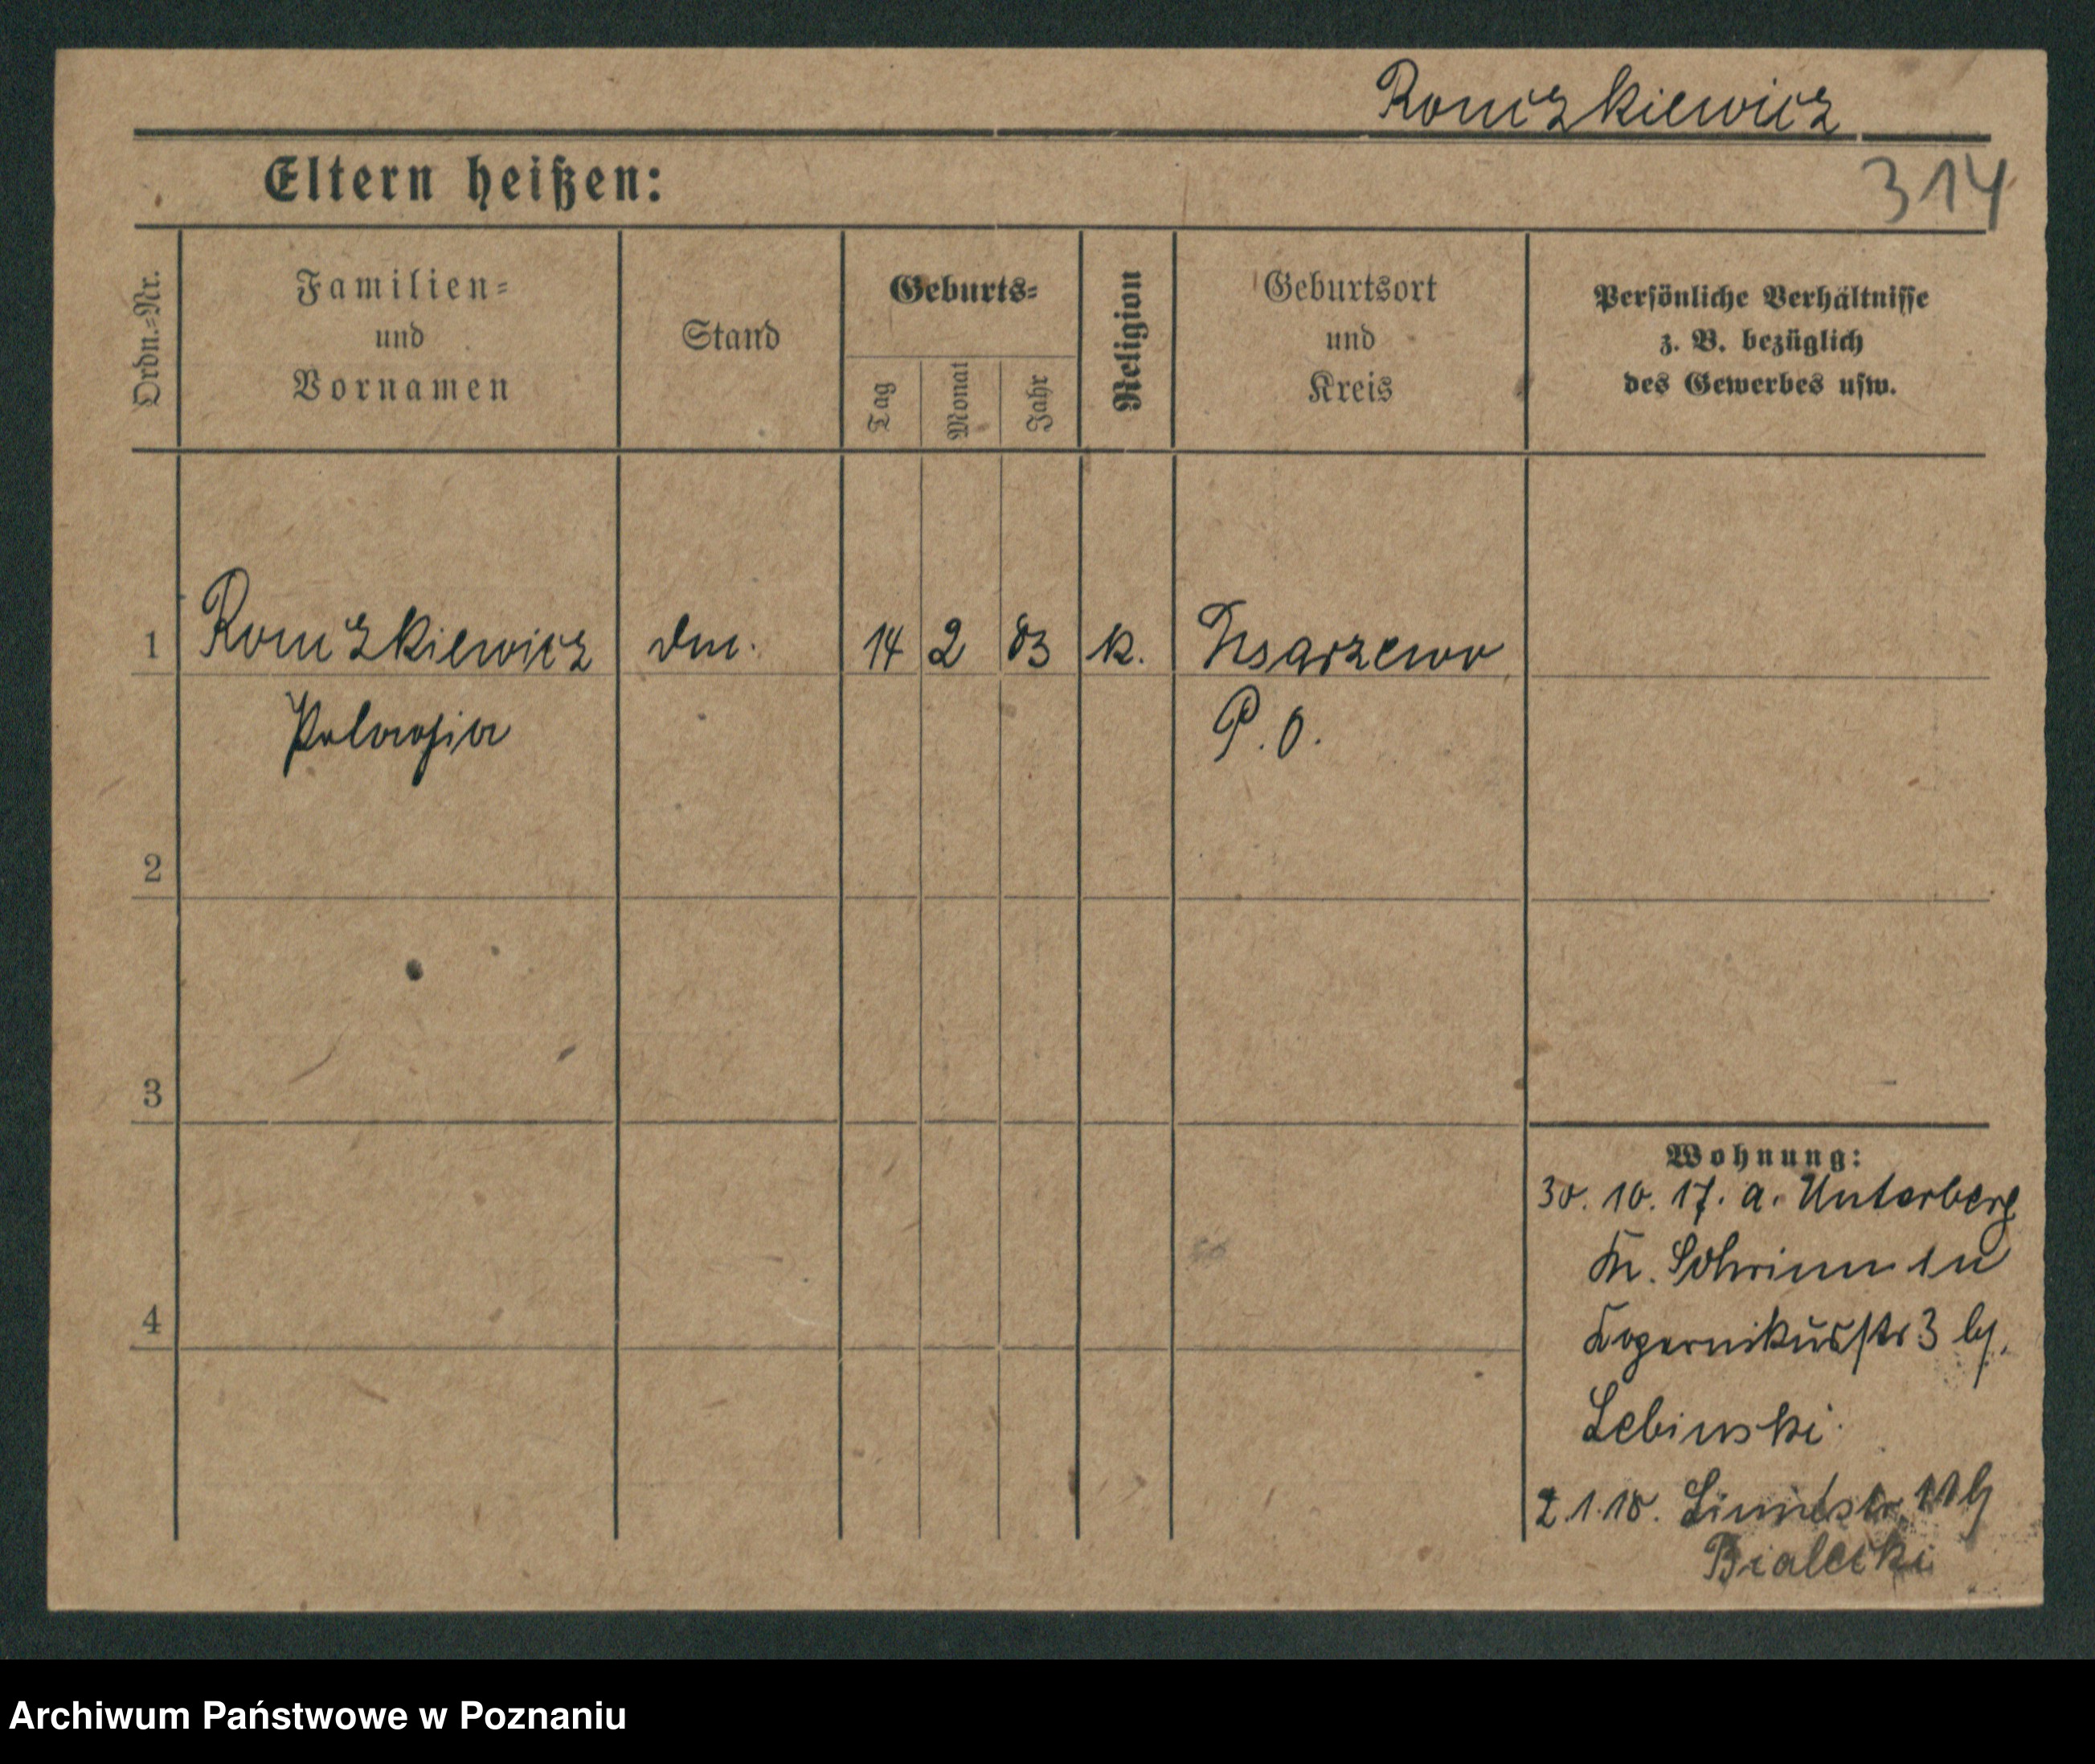 Romczkiewicz
Eltern heißen:
314
Ordn.=Nr.
Familien=
und
Vornamen
Stand
Geburts=
Tag
Monat
Jahr
Religion
Geburtsort
und
Kreis
Persönliche Verhältnisse
z. B. bezüglich
des Gewerbes usw.
1 Romczkiewicz 14 2 83 k.
Pelagia P. O.
2
3
4
Wohnung:
30. 10. 17. a. Unterberg
Kr. Schrimm in
Kopernikusstr 3 bj.
Lebinski
2.1.18.
Bialecki
Archiwum Państwowe w Poznaniu